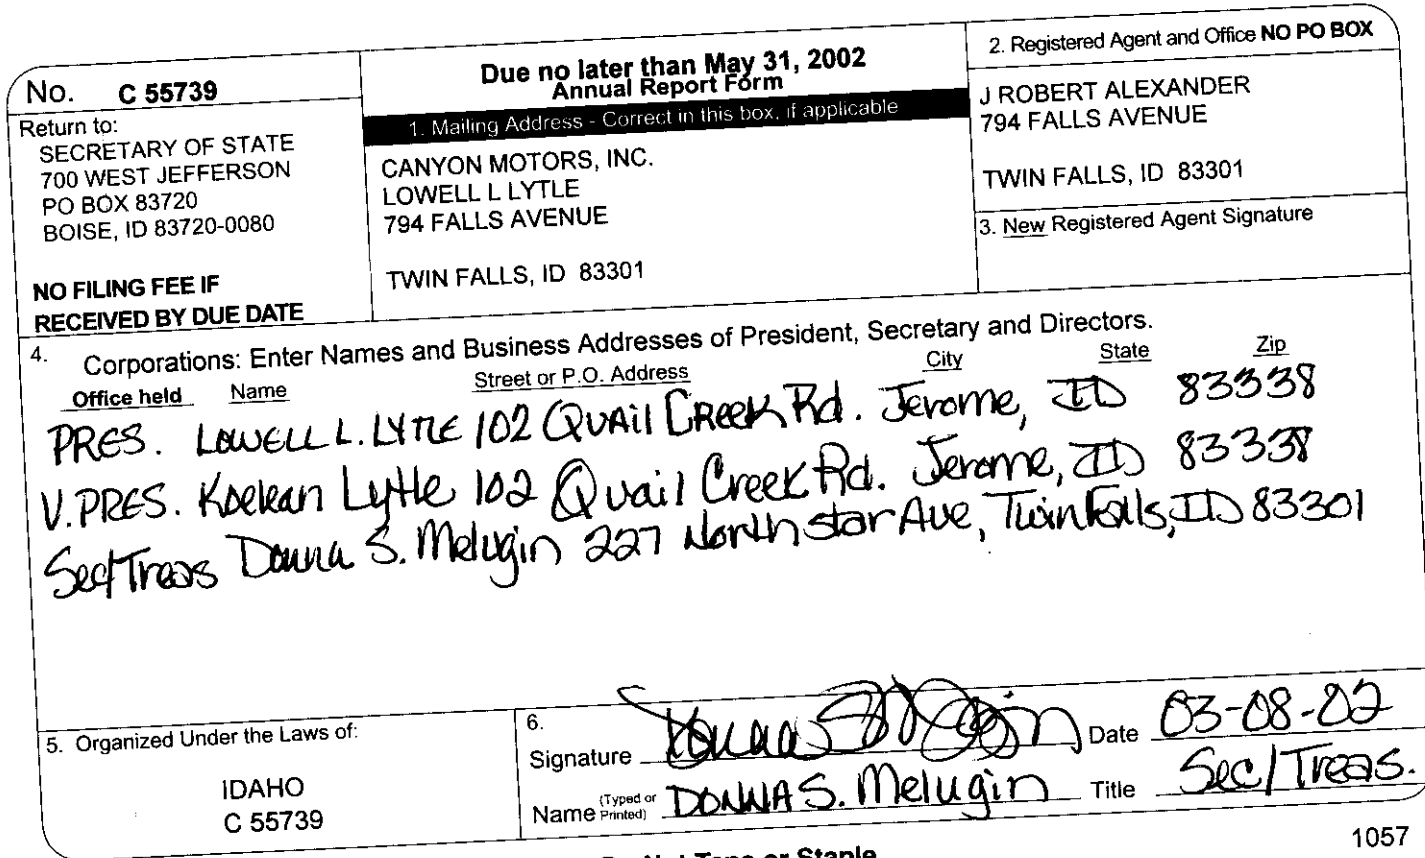 No. C 55739
Return to:
SECRETARY OF STATE
700 WEST JEFFERSON
PO BOX 83720
BOISE, ID 83720-0080
NO FILING FEE IF
RECEIVED BY DUE DATE
Due no later than May 31, 2002
Annual Report Form
1. Mailing Address - Correct in this box, if applicable
CANYON MOTORS, INC.
LOWELL L LYTLE
794 FALLS AVENUE
TWIN FALLS, ID 83301
2. Registered Agent and Office NO PO BOX
J ROBERT ALEXANDER
794 FALLS AVENUE
TWIN FALLS, ID 83301
3. New Registered Agent Signature
4. Corporations: Enter Names and Business Addresses of President, Secretary and Directors.
Office held Name Street or P.O. Address City State Zip
PRES. LOWELL L. LYTLE 102 QUAil CReeK Rd. Jerome, ID 83338
V. PRES. Lytle 102 Quail Creek Rd. Jerome, ID 83338
Sec/Treas Donna S. Melugin 227 North star Ave, Twin Falls, ID 83301
5. Organized Under the Laws of:
IDAHO
C 55739
6.
Signature Donna S Melugin Date 03-08-02
Name (Typed or Printed) DONNA S. Melugin Title Sec/Treas.
Do Not Tape or Staple
1057